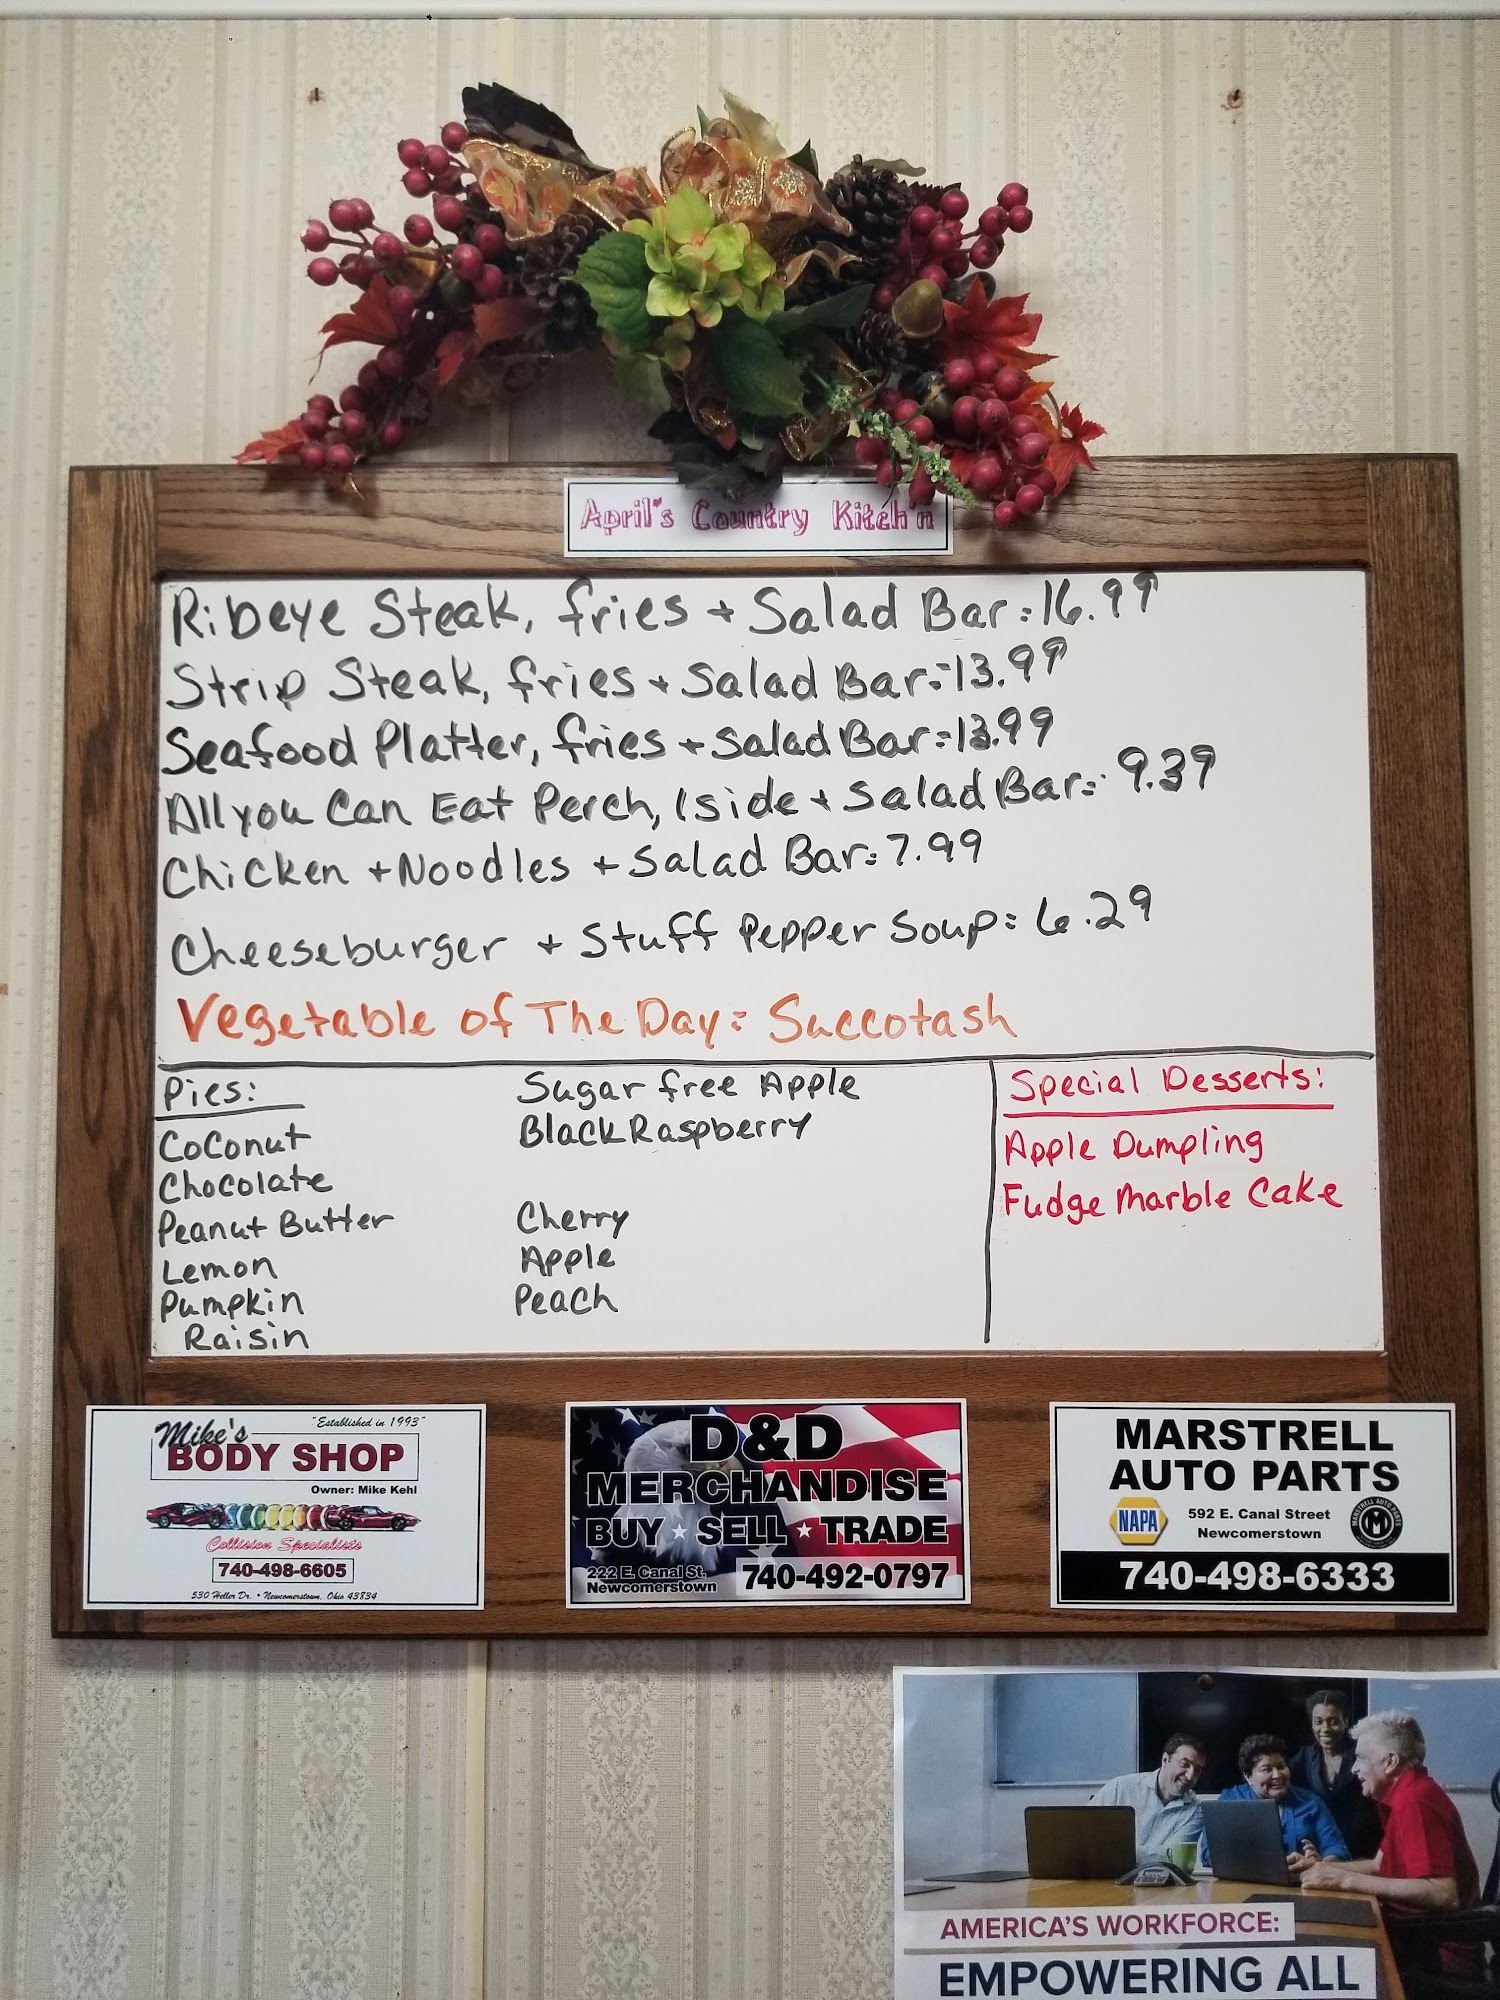 April's Country Kitch'n
Ribeye Steak, fries + Salad Bar: 16.99
Strip Steak, fries + Salad Bar: 13.99
Seafood Platter, fries + Salad Bar: 13.99
All you Can Eat Perch, 1 side + Salad Bar: 9.39
Chicken + Noodles + Salad Bar: 7.99
Cheeseburger + Stuff Pepper Soup: 6.29
Vegetable of The Day: Succotash
Pies:
Coconut
Chocolate
Peanut Butter
Lemon
Pumpkin
Raisin
Sugar free Apple
Black Raspberry
Cherry
Apple
Peach
Special Desserts:
Apple Dumpling
Fudge Marble Cake
"Established in 1993"
Mike's
BODY SHOP
Owner: Mike Kehl
Collision Specialists
740-498-6605
530 Heller Dr. • Newcomerstown, Ohio 43834
D&D
MERCHANDISE
BUY ★ SELL ★ TRADE
222 E. Canal St.
Newcomerstown
740-492-0797
MARSTRELL
AUTO PARTS
NAPA
592 E. Canal Street
Newcomerstown
MARSTRELL AUTO PARTS
M
740-498-6333
AMERICA'S WORKFORCE:
EMPOWERING ALL